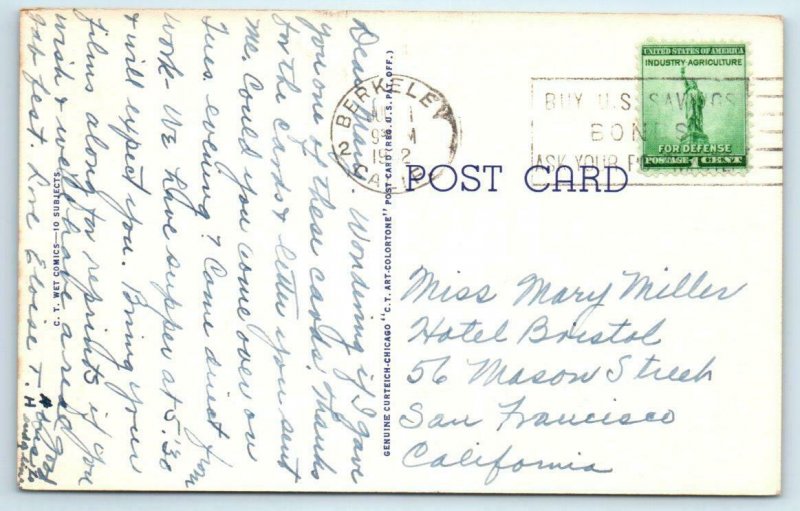 Dear Mary. Wondering if I gave
you one of these cards. Thanks
for the cards & letter you sent
me. Could you come over on
Tues evening? Come direct from
work - We have supper at 5:30
& will expect you. Bring your
films along for reprints if you
wish & we'll have a real
gab fest. Love Eloise T.
C. T. WET COMICS—10 SUBJECTS
GENUINE CURTEICH-CHICAGO "C. T. ART-COLORTONE" POST CARD (REG. U. S. PAT. OFF.)
BERKELEY
1
2
CALIF
BUY U.S. SAVINGS
BONDS
ASK YOUR
UNITED STATES OF AMERICA
INDUSTRY-AGRICULTURE
FOR DEFENSE
POSTAGE 1 CENT
POST CARD
Miss Mary Miller
Hotel Bristol
56 Mason Street
San Francisco
California